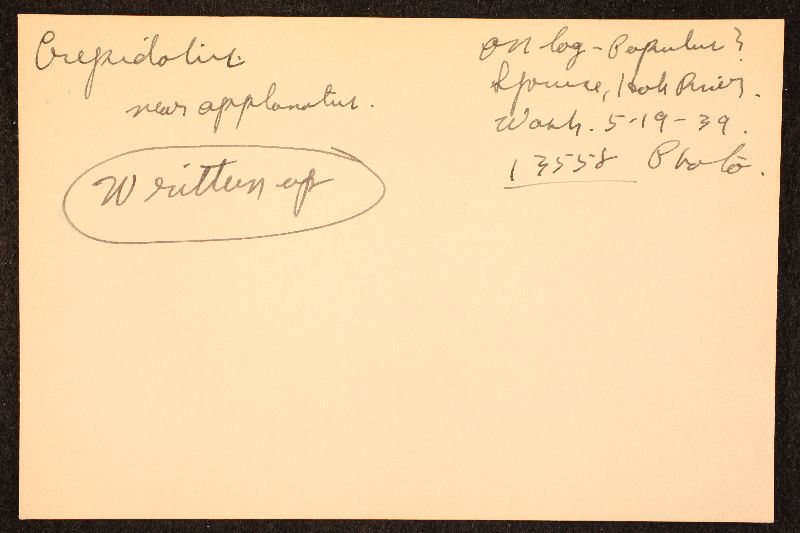 Crepidotus.
near applanatus.
Written up
on log - Populus?
Spruce, Hoh River.
Wash. 5-19-39.
13558 Photo.